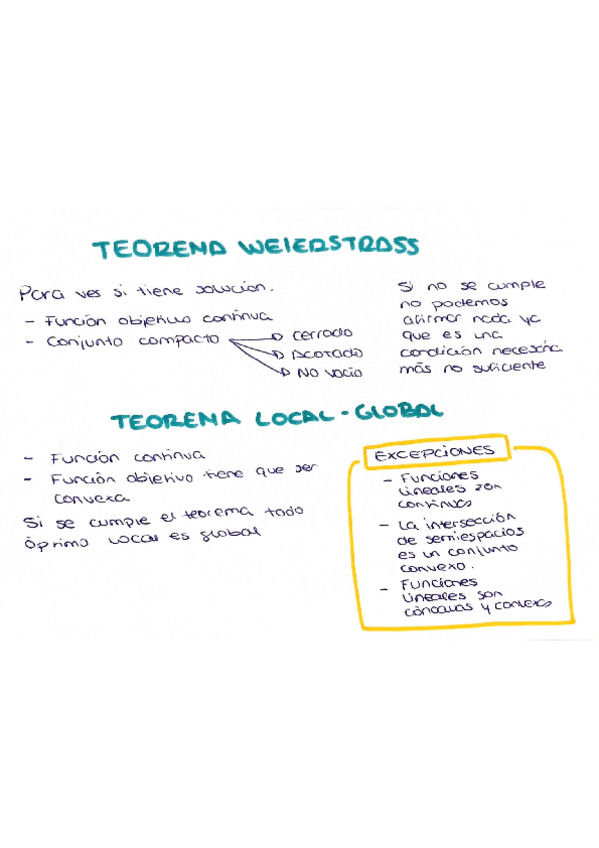 TEOREMA WEIERSTRASS
Para ves si tiene solución.
- Función objetivo continua
- Conjunto compacto
cerrado
Acotado
No vacío
Si no se cumple
no podemos
afirmar nada ya
que es una
condición necesaria
más no suficiente
TEOREMA LOCAL - GLOBAL
- Función continua
- Función objetivo tiene que ser
convexa
Si se cumple el teorema todo
óptimo local es global
EXCEPCIONES
- Funciones
lineales son
continuas
- La intersección
de semiespacios
es un conjunto
convexo.
- Funciones
lineales son
cóncavas y convexas